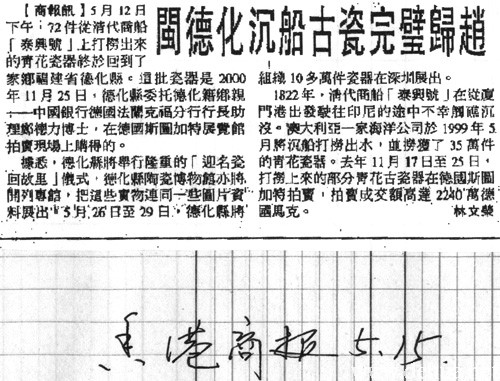 閩德化沉船古瓷完璧歸趙
【商報訊】5月12日
下午，72件從清代商船
「泰興號」上打撈出來
的青花瓷器終於回到了
家鄉福建省德化縣。這批瓷器是2000
年11月25日，德化縣委托德化籍鄉親
——中國銀行德國法蘭克福分行行長助
理鄭德力博士，在德國斯圖加特展覽館
拍賣現場上購得的。
據悉，德化縣將舉行隆重的「迎名瓷
回故里」儀式，德化縣陶瓷博物館亦將
開列專館，把這些實物連同一些圖片資
料展出。5月26日至29日，德化縣將
組織10多萬件瓷器在深圳展出。
1822年，清代商船「泰興號」在從廈
門港出發駛往印尼的途中不幸觸礁沉
沒。澳大利亞一家海洋公司於1999年5
月將沉船打撈出水，並撈獲了35萬件
的青花瓷器。去年11月17日至25日，
打撈上來的部分青花古瓷器在德國斯圖
加特拍賣，拍賣成交額高達2240萬德
國馬克。
林文榮
香港商报 5.15.